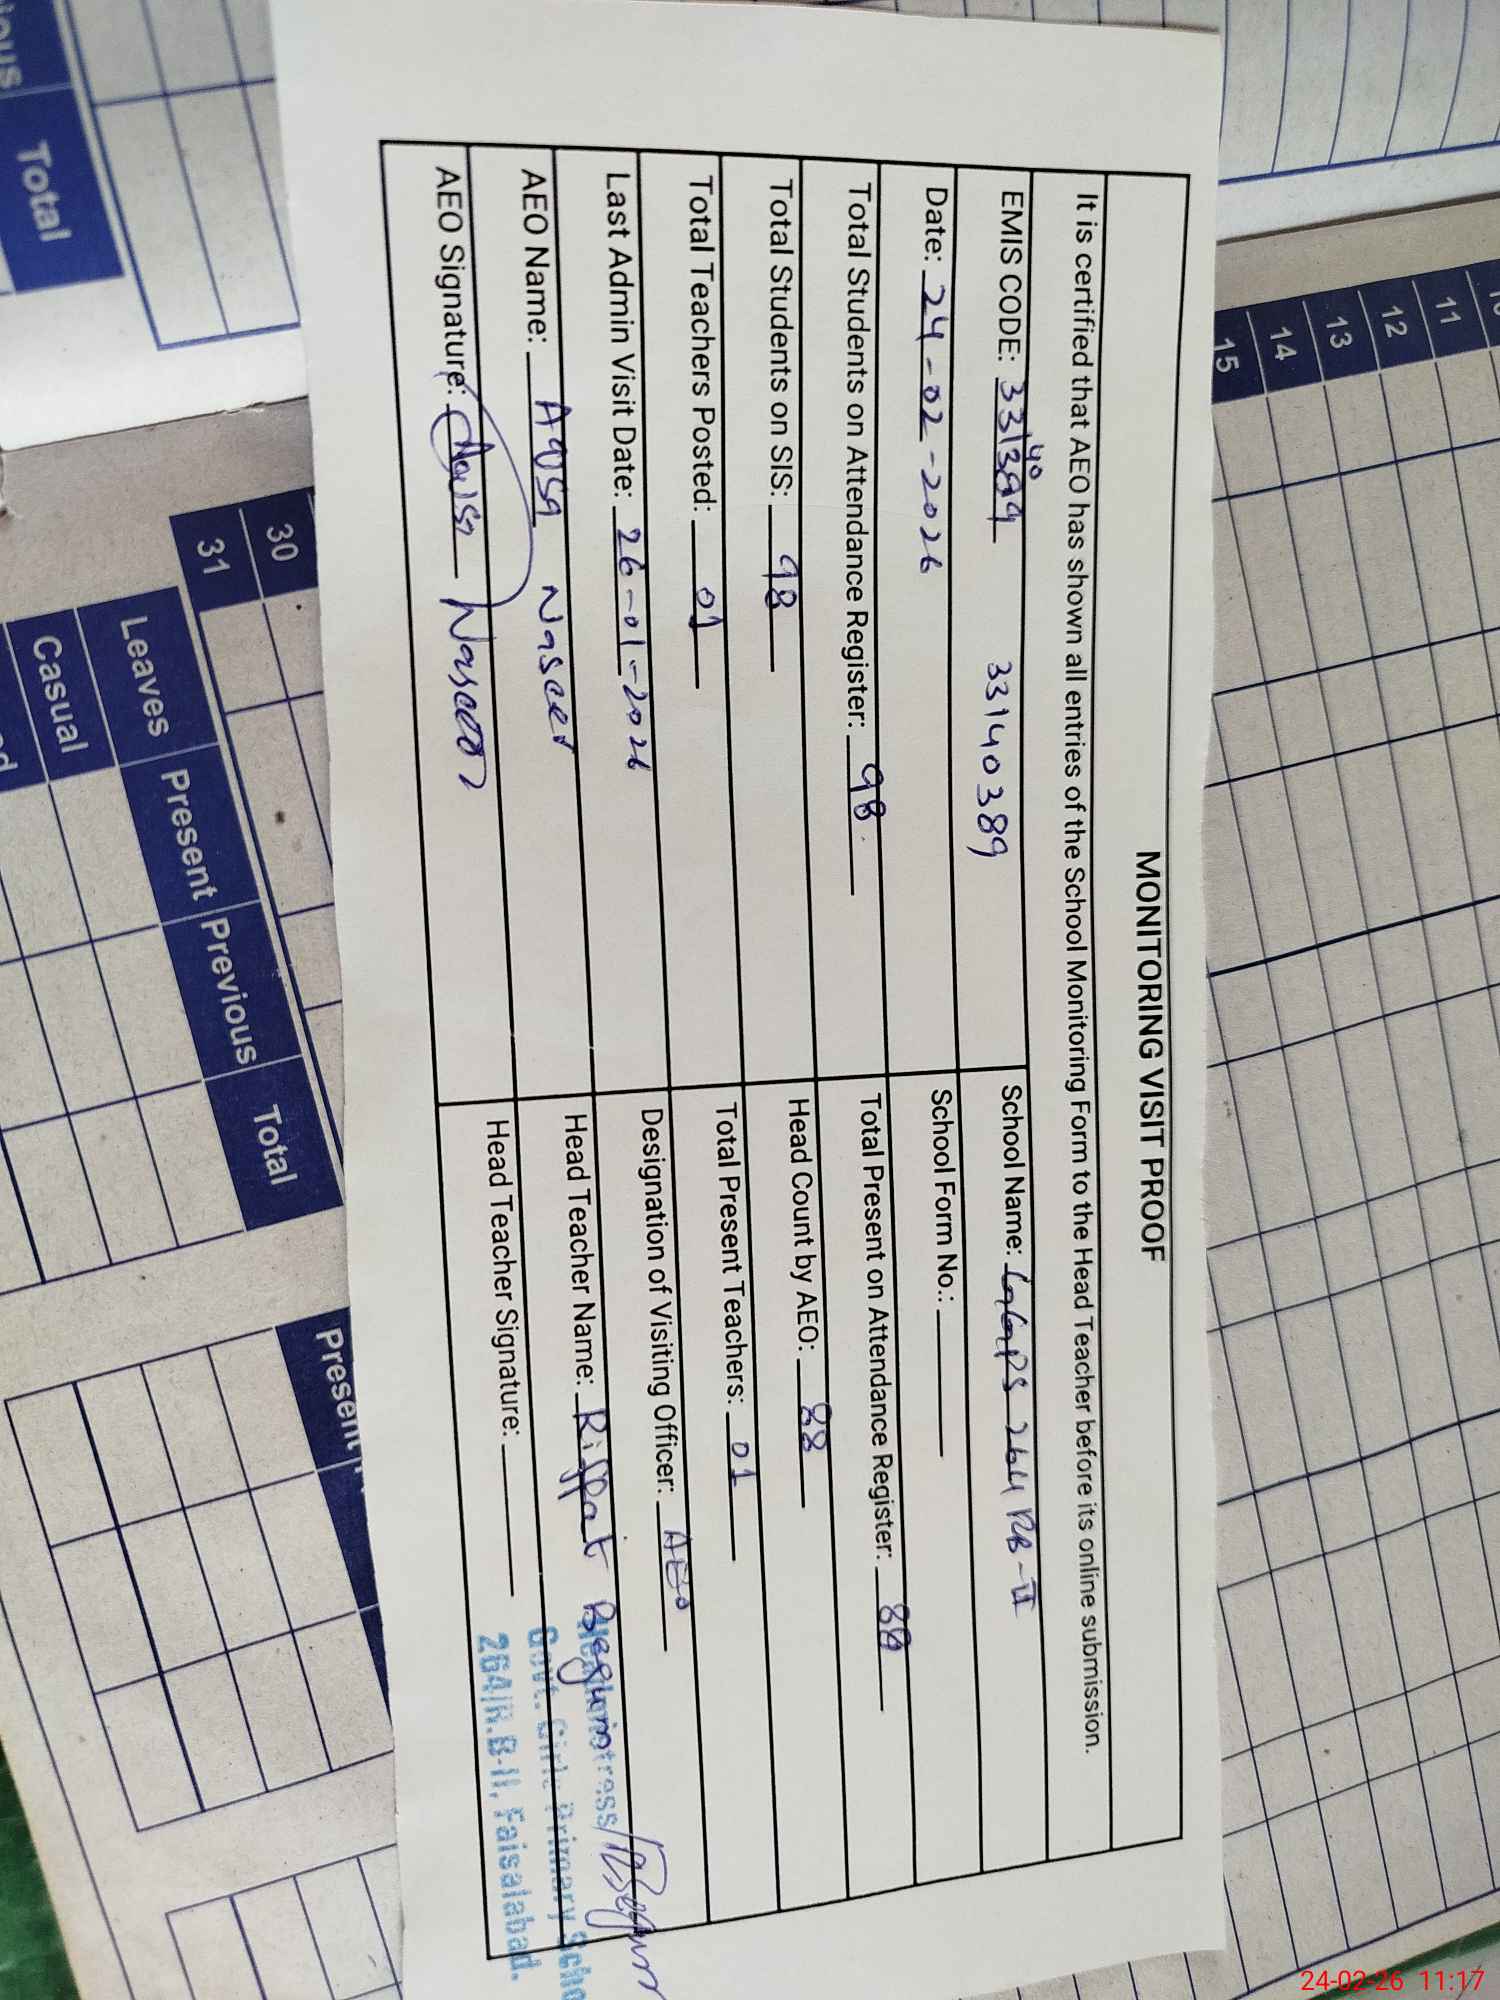 MONITORING VISIT PROOF
It is certified that AEO has shown all entries of the School Monitoring Form to the Head Teacher before its online submission.
EMIS CODE: 33140389
School Name: GGPS 264 RB-II
Date: 24-02-2026
School Form No.:
Total Students on Attendance Register: 98
Total Present on Attendance Register: 88
Total Students on SIS: 98
Head Count by AEO: 88
Total Teachers Posted: 01
Total Present Teachers: 01
Last Admin Visit Date: 26-01-2026
Designation of Visiting Officer: AEO
AEO Name: Aqsa Naseer
Head Teacher Name: Riffat Begum
AEO Signature: Aqsa Naseer
Head Teacher Signature:
Headmistress
Govt. Girls Primary Scho
264/R.B-II, Faisalabad.
Total
11
12
13
14
15
30
31
Leaves
Present
Previous
Total
Casual
Present
24-02-26 11:17